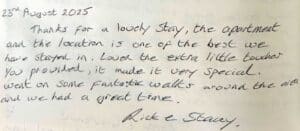 23rd August 2025
Thanks for a lovely stay, the apartment
and the location is one of the best we
have stayed in. Loved the extra little touches
you provided, it made it very special.
went on some fantastic walks around the
and we had a great time.
Rick & Stacey.